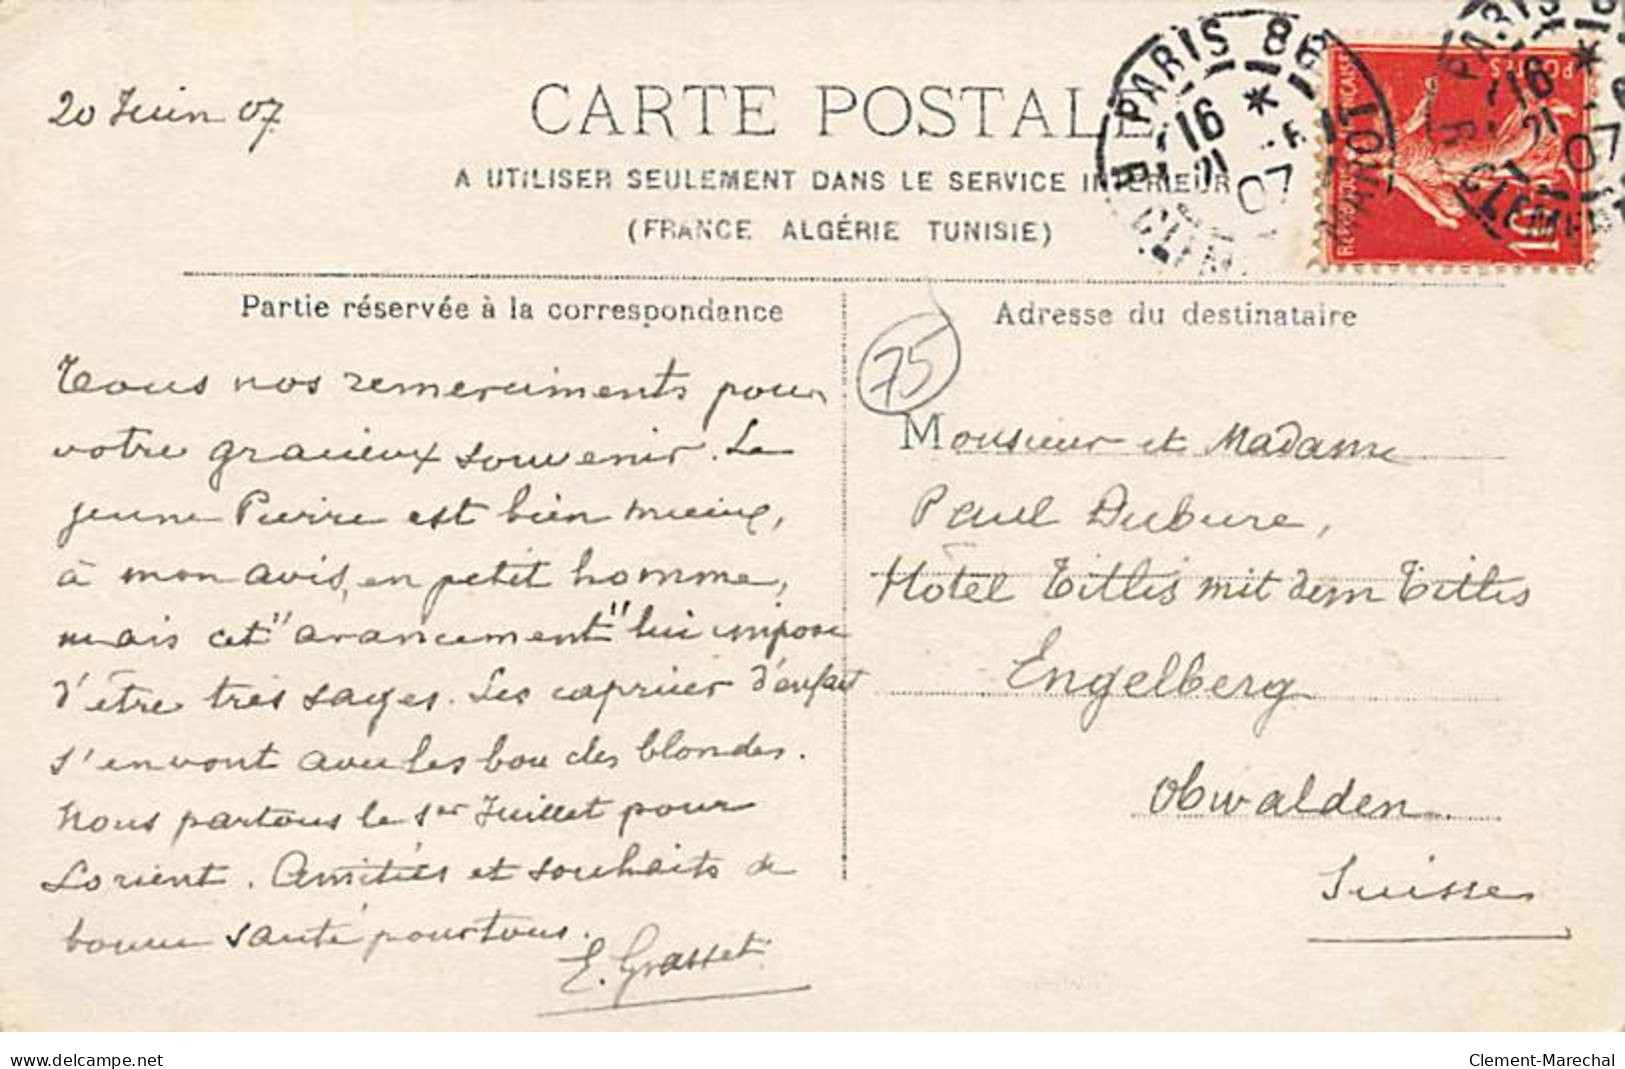 20 Juin 07
CARTE POSTALE
A UTILISER SEULEMENT DANS LE SERVICE INTÉRIEUR
(FRANCE ALGÉRIE TUNISIE)
PARIS 86
16
21
07
PARIS
16
21
07
POSTES
10
Partie réservée à la correspondance
Adresse du destinataire
75
Tous nos remerciments pour
votre gracieux souvenir. Le
jeune Pierre est bien mieux,
à mon avis, en petit homme,
mais cet "avancement" lui impose
d'être très sages. Les caprices d'enfant
s'en vont avec les boucles blondes.
Nous partons le 1er Juillet pour
Lorient. Amitiés et souhaits de
bonne santé pour tous.
E. Grasset
Monsieur et Madame
Paul Dubure,
Hôtel Titlis mit dem Titlis
Engelberg
Obwalden
Suisse
www.delcampe.net
Clement-Marechal